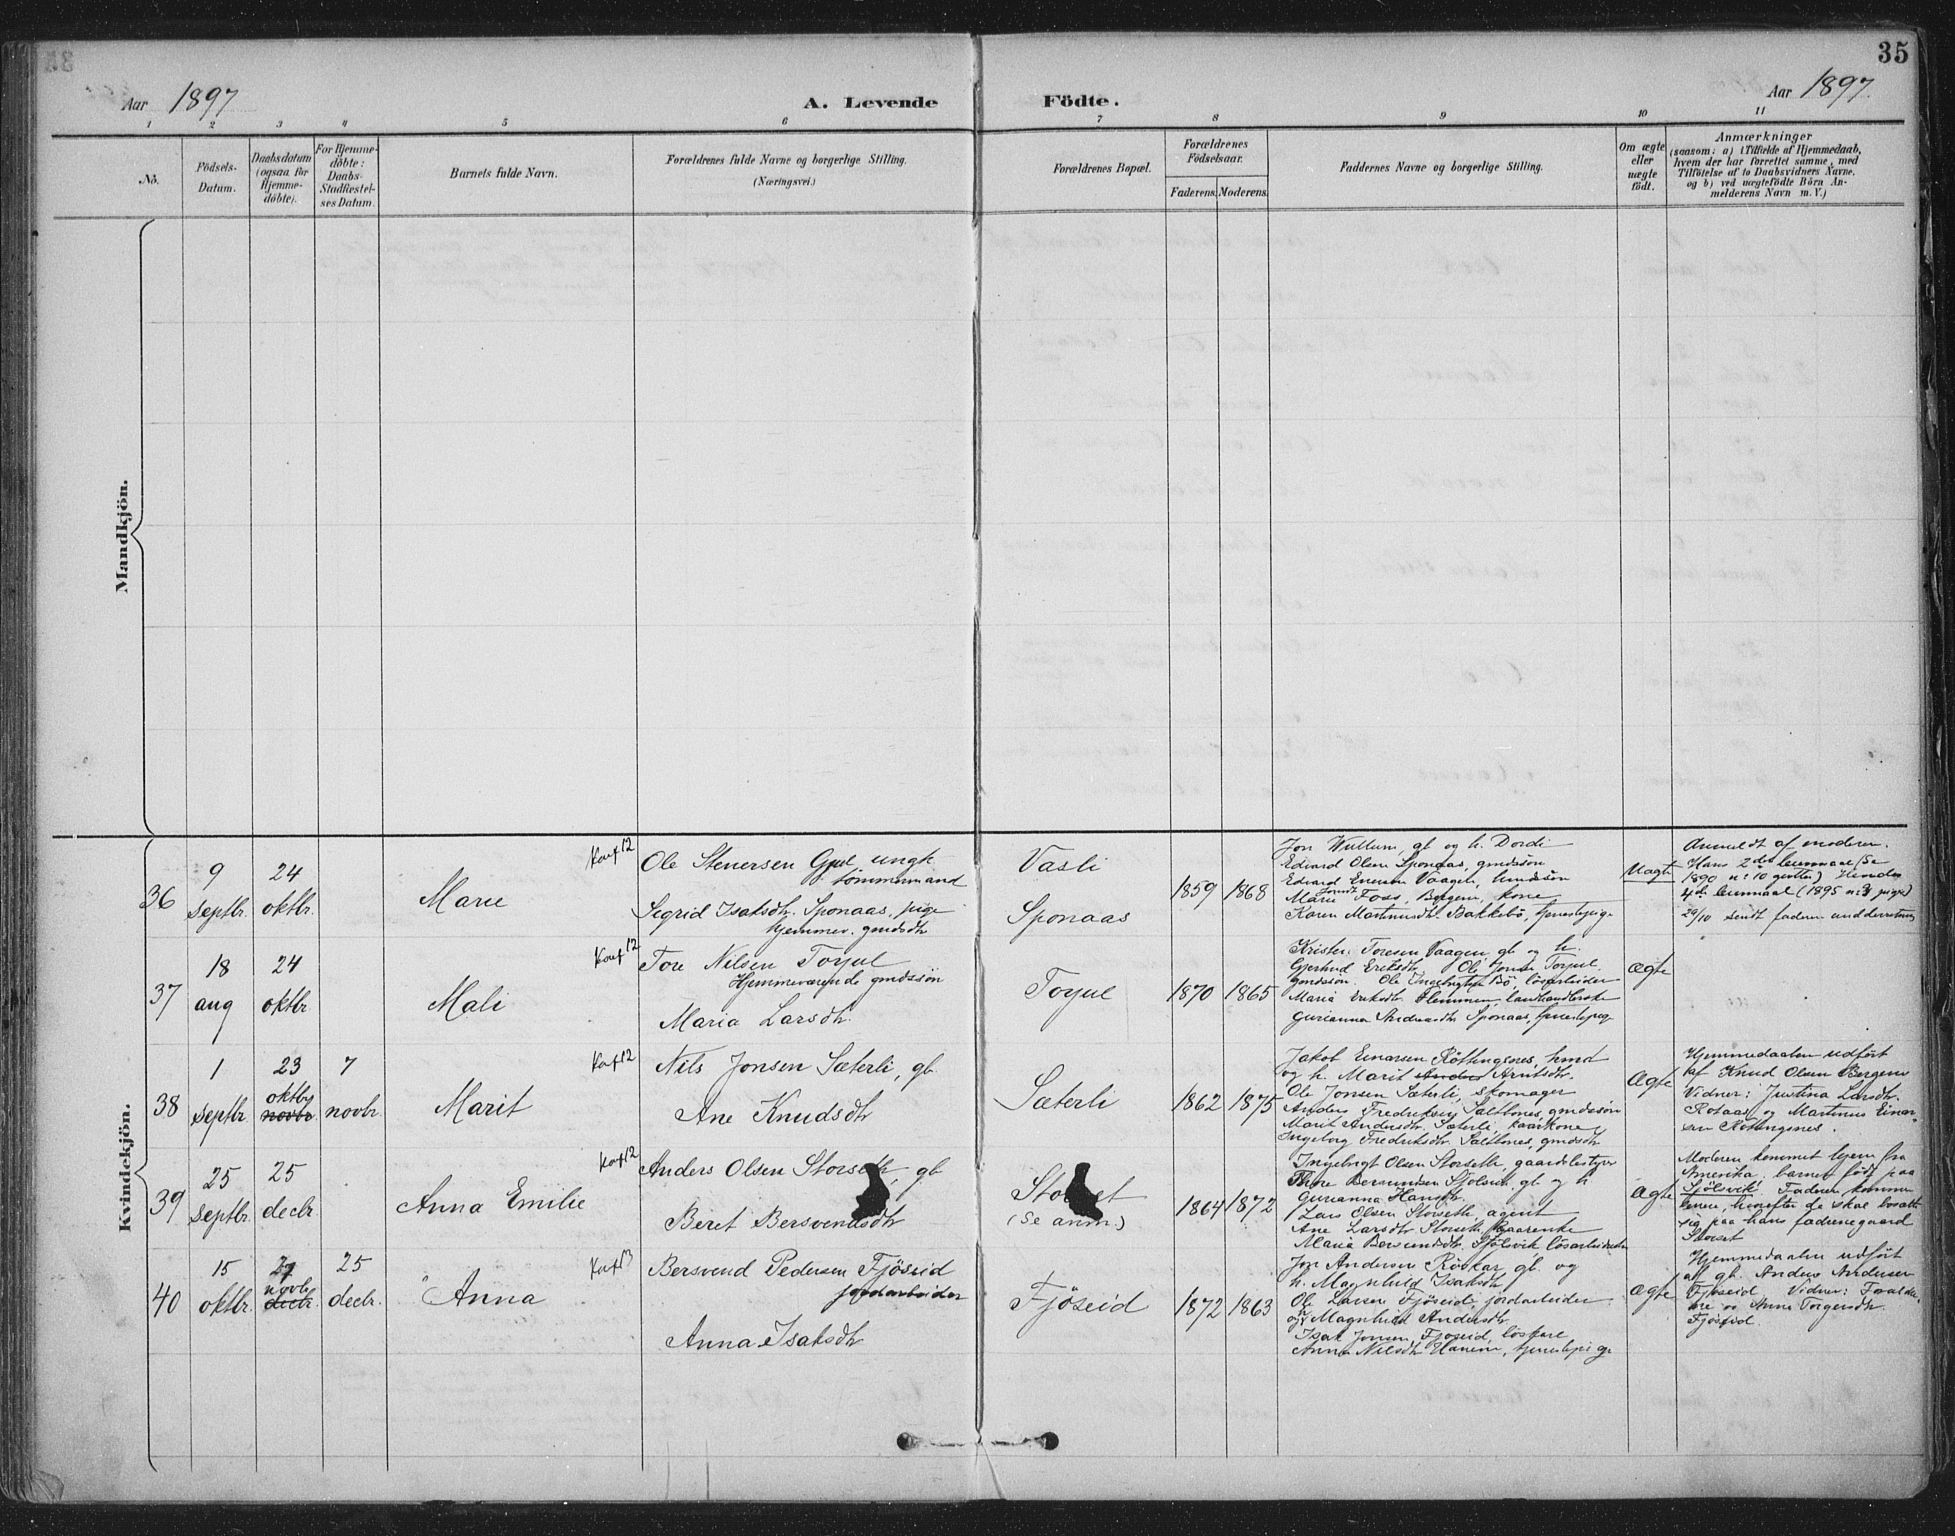 35
Aar 1897
A. Levende Födte.
Aar 1897.
1 2 3 4 5 6 7 8 9 10 11
No.
Födsels-
Datum.
Daabsdatum
(ogsaa for
Hjemme-
döbte).
For Hjemme-
döbte:
Daabs-
Stadfæstel-
ses Datum.
Barnets fulde Navn.
Forældrenes fulde Navne og borgerlige Stilling.
(Næringsvei.)
Forældrenes Bopæl.
Forældrenes
Födselsaar.
Faderens. Moderens.
Faddernes Navne og borgerlige Stilling.
Om ægte
eller
uægte
födt.
Anmærkninger
(saasom: a) i Tilfælde af Hjemmedaab,
hvem der har forrettet samme, med
Tilföielse af to Daabsvidners Navne,
og b) ved uægtefödte Börn An-
melderens Navn m. V.)
Mandkjön.
Kvindekjön.
36
9
septbr.
24
oktbr.
Marie
Konf 12
Ole Stenersen ungk.
tömmermand
Segrid Isaksdtr. Sponaas, pige
hjemmev. gmdsdtr
Vasli
Sponaas
1859 1868
Jon Wullum, gb og h. Dordi
Edvard Olsen Sponaas, gmdssön
Edvard Vaagen, gmdssön
Marie Foss, Bergen, kone
Karen Martinusdtr. Bakkebö, tjenestepige
Uægte
Anmeldt af moderen.
Hans 2det leiermaal (se
1890 n: 10 gutter) Hendes
4de leiermaal (1895 n: 3 piger)
29/10 sendt faderen underretning
37
18
aug
24
oktbr.
Mali
Konf 12
Tore Nilsen Torjul
Hjemmeværende gmdssön
Maria Larsdtr.
Torjul
1870 1865
Krister Toresen Vaagen gb og h.
Gjertrud Eriksdtr Ole Jonsen Torjul
gmdssön. Ole Ingebrigtsen Bö, lösarbeider
Maria Eriksdtr. landhandlerske
Gurianna Andreasdtr Sponaas, tjenestepige
Ægte
38
1
septbr.
23
oktbr
novbr.
7
novbr.
Marit
Konf 12
Nils Jonsen Sæterli, gb.
Ane Knudsdtr
Sæterli
1862 1875
Jakob Einarsen Röttingsnes, hmd
og h. Marit Arntsdtr.
Ole Jonsen Sæterli, skomager
Anders Fredriksen Saltbones, gmdssön
Marit Andersdtr. Sæterli, kaarkone
Ingeborg Fredriksdtr. Saltbones, gmdsdtr
Ægte
Hjemmedaaben udfört
af Knud Olsen Bergem
Vidner: Justina Larsdtr.
Rotaas og Martinus Einar-
sen Röttingsnes.
39
25
septbr.
25
decbr
Anna Emilie
Konf 12
Anders Olsen Storseth, gb
Beret Bersvendsdtr
Storset
(Se anm.)
1864 1872
Ingebrigt Olsen Storseth, gaardbestyrer
gb og h
Gurianna Hansdtr.
Lars Olsen Storseth, agent
Ane Larsdtr Storseth,
Maria Bersvendsdtr. Sjölsvik lösarbeider
Ægte
Moderen kommet hjem fra
Amerika, barnet födt paa
Sjölsvik. Faderen kommer
senere, hvorefter de skal bosætte
sig paa hans fædrenegaard
Storset
40
15
oktbr.
27
novbr
decbr.
25
decbr.
Anna
Konf 13
Bersvend Pedersen Fjöseid
jordarbeider
Anna Isaksdtr
Fjöseid
1872 1863
Jon Andersen Röskar, gb. og
h. Magnhild Isaksdtr
Ole Larsen Fjöseid, jordarbeider
og h Magnhild Andersdtr
Isak Jonsen Fjöseid, löskare
Anne Nilsdtr Hanem, tjenestepige
Ægte
Hjemmedaaben udfört
af gb. Anders Andersen
Fjöseid Vidner: Foræld-
re og Anne Torgersdtr.
Fjöseid.